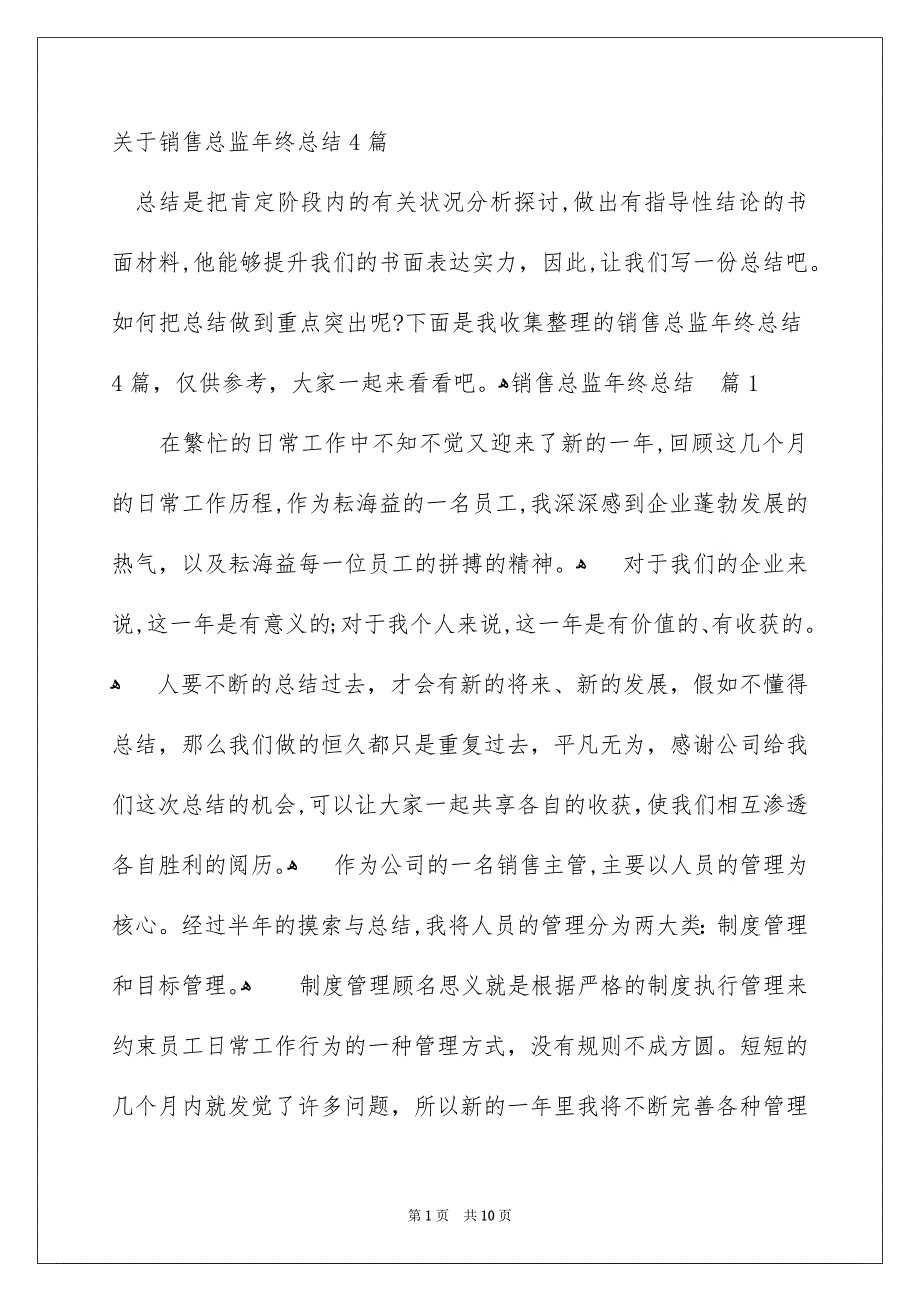 关于销售总监年终总结 4 篇
总结是把肯定阶段内的有关状况分析探讨,做出有指导性结论的书
面材料,他能够提升我们的书面表达实力，因此,让我们写一份总结吧。
如何把总结做到重点突出呢?下面是我收集整理的销售总监年终总结
4 篇，仅供参考，大家一起来看看吧。ﻫ销售总监年终总结　篇 1
在繁忙的日常工作中不知不觉又迎来了新的一年,回顾这几个月
的日常工作历程,作为耘海益的一名员工,我深深感到企业蓬勃发展的
热气，以及耘海益每一位员工的拼搏的精神。ﻫ　对于我们的企业来
说,这一年是有意义的;对于我个人来说,这一年是有价值的、有收获的。
ﻫ　人要不断的总结过去，才会有新的将来、新的发展，假如不懂得
总结，那么我们做的恒久都只是重复过去，平凡无为，感谢公司给我
们这次总结的机会,可以让大家一起共享各自的收获，使我们相互渗透
各自胜利的阅历。ﻫ　作为公司的一名销售主管,主要以人员的管理为
核心。经过半年的摸索与总结,我将人员的管理分为两大类：制度管理
和目标管理。ﻫ　　制度管理顾名思义就是根据严格的制度执行管理来
约束员工日常工作行为的一种管理方式，没有规则不成方圆。短短的
几个月内就发觉了许多问题，所以新的一年里我将不断完善各种管理
第 1 页　共 10 页